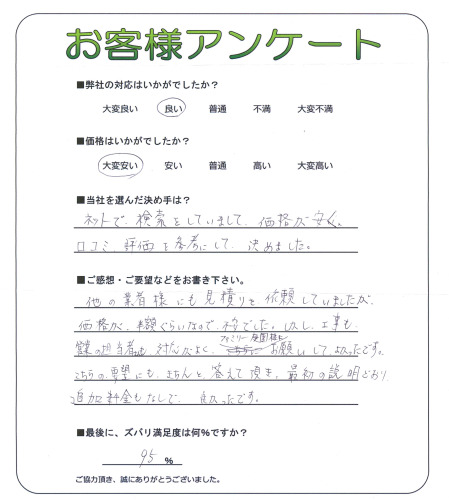 お客様アンケート
■弊社の対応はいかがでしたか？
大変良い 良い 普通 不満 大変不満
■価格はいかがでしたか？
大変安い 安い 普通 高い 大変高い
■当社を選んだ決め手は？
ネットで、検索をしていまして、価格が安く、
口コミ、評価を参考にして、決めました。
■ご感想・ご要望などをお書き下さい。
他の業者様にも見積りを依頼していましたが、
価格が、半額ぐらいなので、不安でした。しかし、工事も
営業の担当者も、対応がよく、 ファミリー庭園様に お願いして、よかったです。
こちらの要望にも、きちんと答えて頂き、最初の説明どおり
追加料金もなしで、良かったです。
■最後に、ズバリ満足度は何％ですか？
95 %
ご協力頂き、誠にありがとうございました。